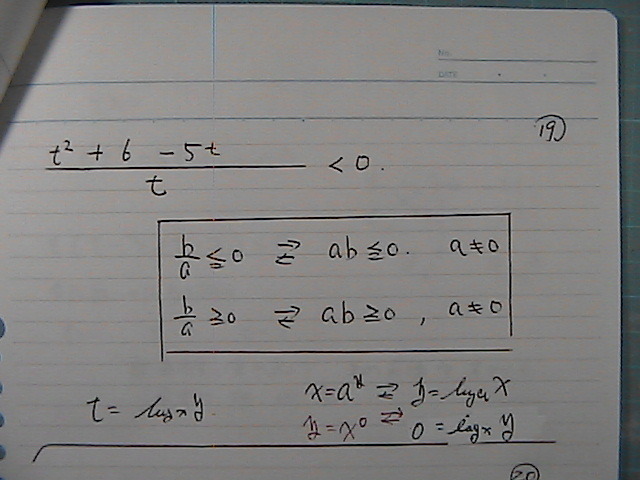 No.
DATE
19
t² + 6 - 5t / t < 0.
b/a ≦ 0 ⇄ ab ≦ 0. a ≠ 0
b/a ≧ 0 ⇄ ab ≧ 0, a ≠ 0
x = aʸ ⇄ y = logₐ x
t = logₓ y
y = x⁰ ⇄ 0 = logₓ y
20